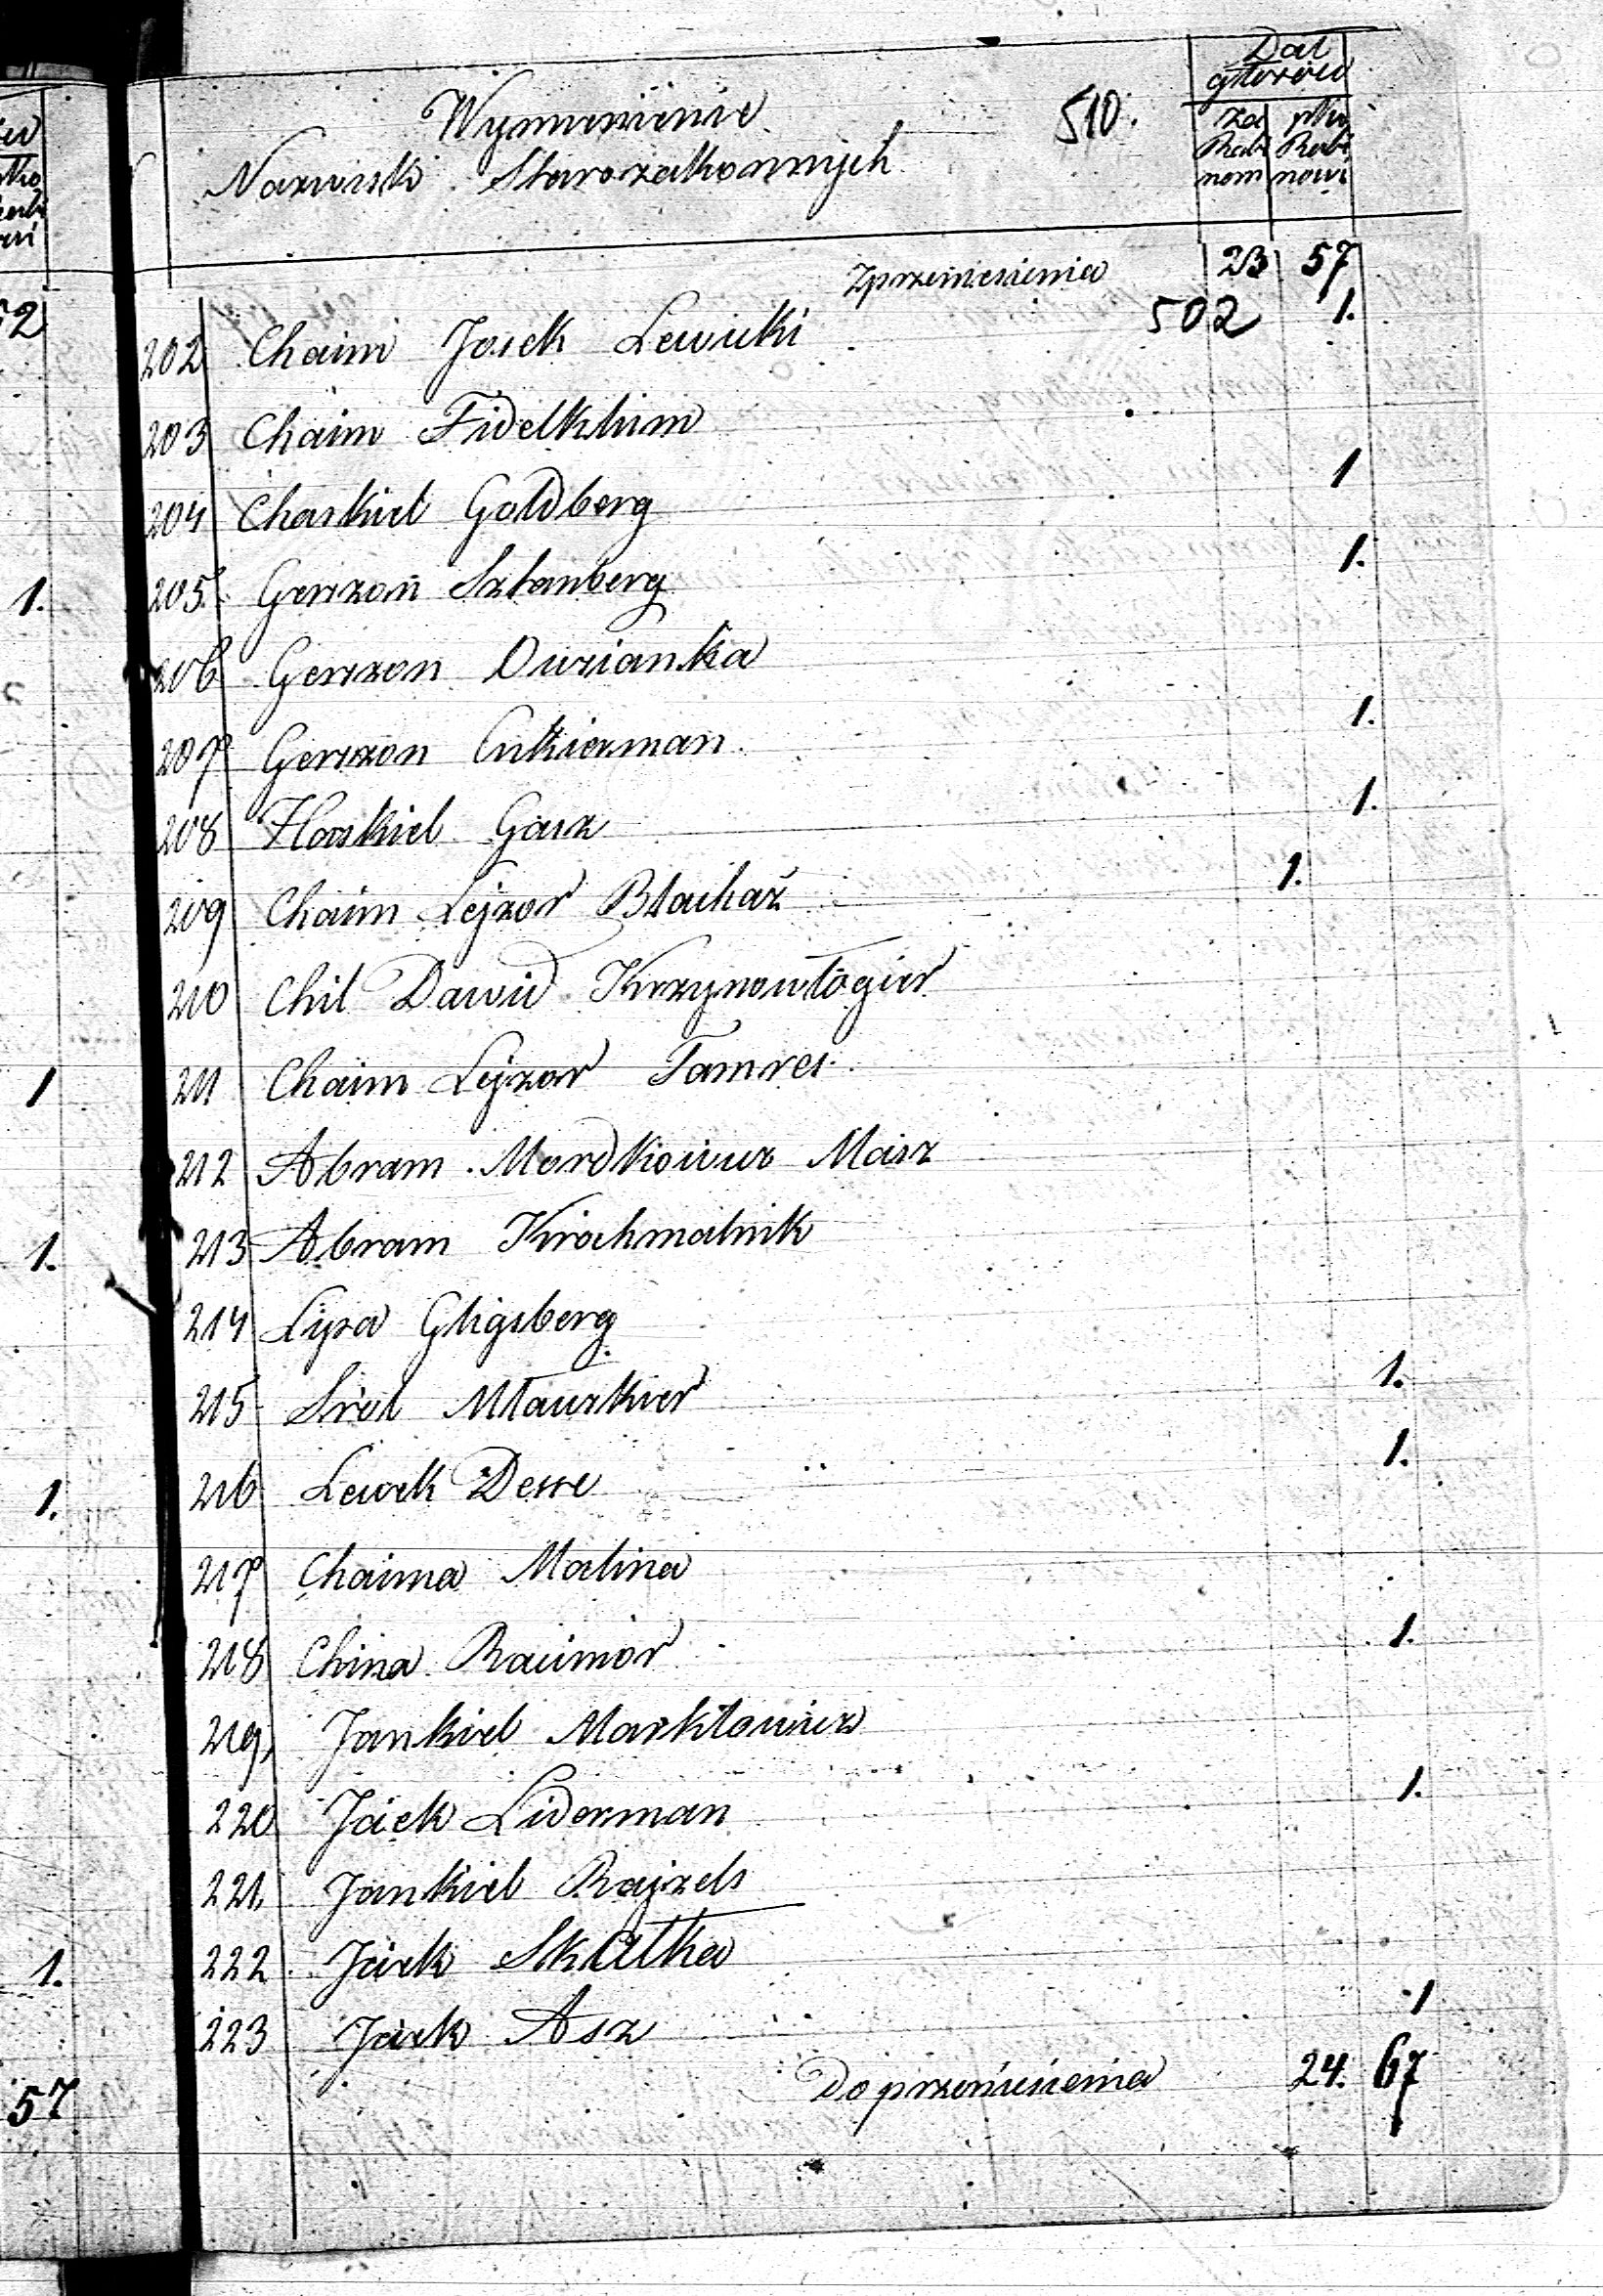 Wymienienie
Nazwisk Starozakonnych
510.
Dał
głosów
za ptko
Rabi Rabi
nom nowi
Zprzeniesienia 23 57
202 Chaim Josek Lewicki 502 1.
203 Chaim Fidelkhim
204 Chaskiel Goldberg 1
205. Gerszon Sztanberg 1.
206 Gerszon Owsianka
207 Gerszon Cukierman 1.
208 Haskiel Gasz 1.
209 Chaim Lejzor Blachaż 1.
210 Chil Dawid Krzynowłogier
211 Chaim Lejzor Tamres
212 Abram Mordkowicz Masz
213 Abram Krochmalnik
214 Lyza Gligsberg
215 Srol Mławskier 1.
216 Lewek Desse 1.
217 Chaima Malina
218 China Racimor 1.
219, Jankiel Markłowicz
220 Jcek Liderman 1.
221, Jankiel Rajzels
222 Jcek Skałka
223 Jcek Asz 1
Do przeniesienia 24. 67
52
1.
1
1.
1.
1.
57